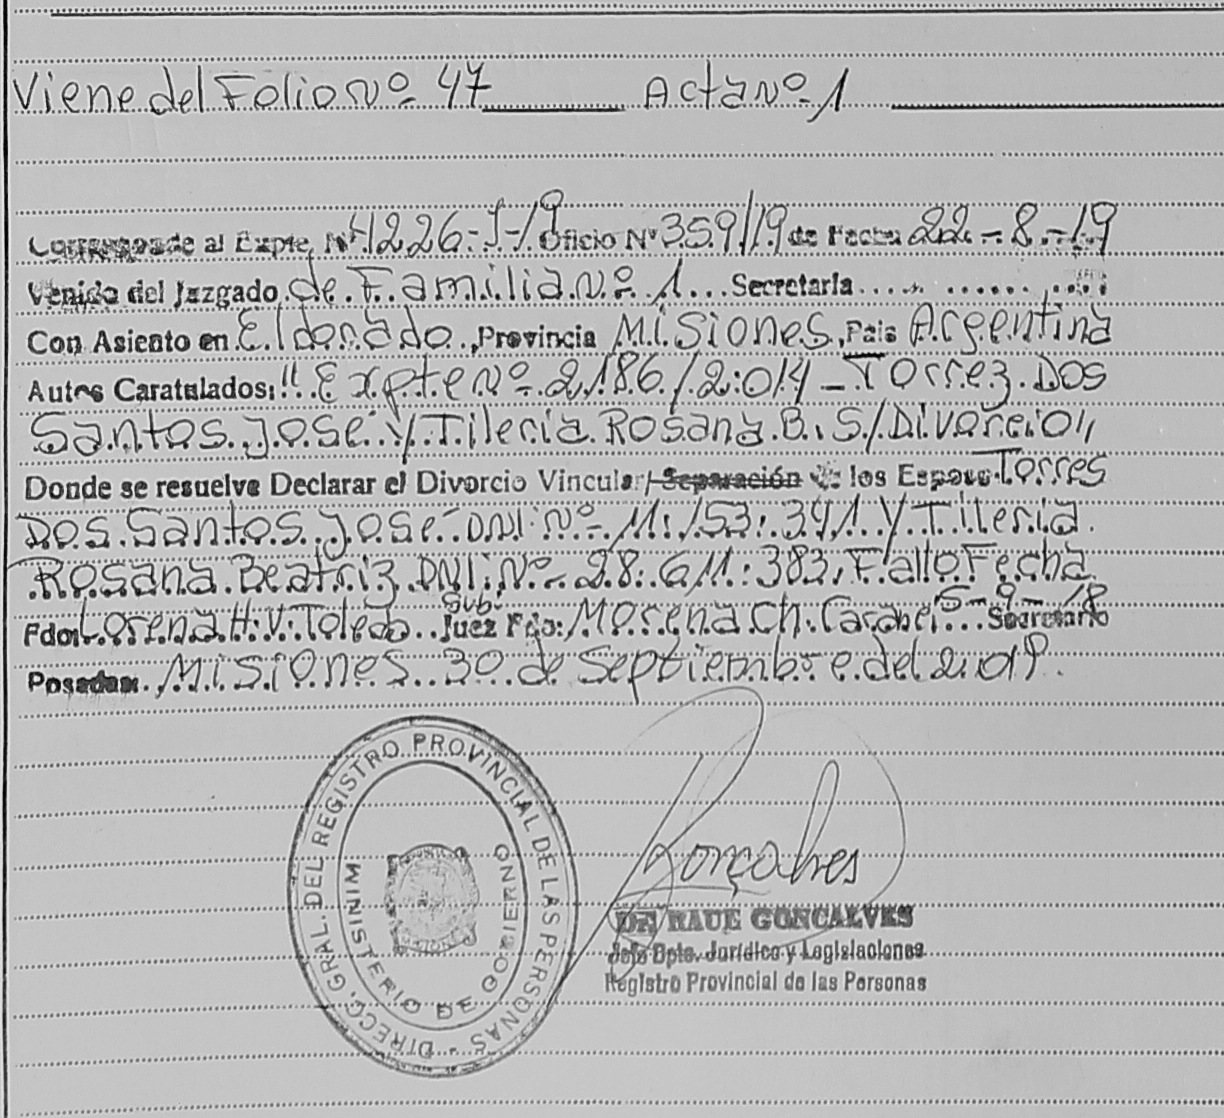 Viene del Folio Nº 47 Acta Nº 1
Corresponde al Expte. Nº 4226-J-19 Oficio Nº 359/19 de Fecha 22-8-19
Venido del Juzgado de Familia Nº 1 Secretaria
Con Asiento en Eldorado, Provincia Misiones, Pais Argentina
Autos Caratulados: "Expte Nº 2186/2.014 - Torrez Dos
Santos José y Tileria Rosana B. S/Divorcio"
Donde se resuelve Declarar el Divorcio Vincular/Separación de los Esposo Torres
Dos Santos José DNI Nº 11.153.341 y Tileria
Rosana Beatriz DNI Nº 28.611.383, Fallo Fecha
5-9-18
Fdo: Lorena H.V. Toledo Sub. Juez Fdo: Morena Ch. Secretario
Posadas: Misiones 30 de Septiembre del 2.019.
DIRECC. GRAL. DEL REGISTRO PROVINCIAL DE LAS PERSONAS -
MINISTERIO DE GOBIERNO
Goncalves
DR RAUE GONCALVES
Jefe Dpto. Jurídico y Legislaciones
Registro Provincial de las Personas